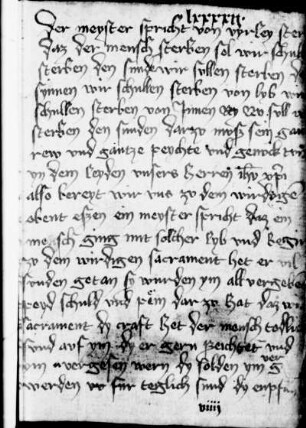 lxxxxii
Der meyster spricht von vyrley ster
daz der mensch sterben sol wir schul
sterben den sunden wir sullen sterben
synnen wir schullen sterben von lyb
schullen sterben von
sterben den sunden darzo muß sein gan
rew vnd gantze peychte vnd
vn dem leyden vnsers herren ihu xpi
also bereyt wir vns zo dem wirdigen
obent essen ein meyster spricht daz ein
mensch ging mit solcher lyb vnd begir
zo dem wirdigen sacrament het er vil
sunden getan sy wurden ym all vergeben
peyd schuld vnd pein dar zo hat daz
sacrament dy craft het der mensch todlich
sund auf ym dy er gern peichtet vnd
ym vergessen wern dy solden ym ver
werden vo fur teglich sund dy enpf
viiii